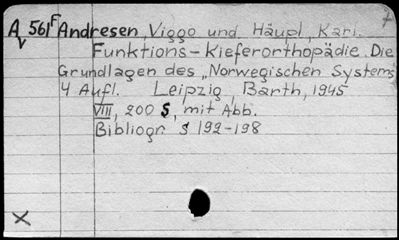 A 561F Andresen, Viggo und Häupl, Karl.
v
Funktions-Kieferorthopädie. Die
Grundlagen des „Norwegischen Systems"
4 Aufl. Leipzig, Barth, 1945
VIII, 200 S, mit Abb.
Bibliogr. S 192-198
X